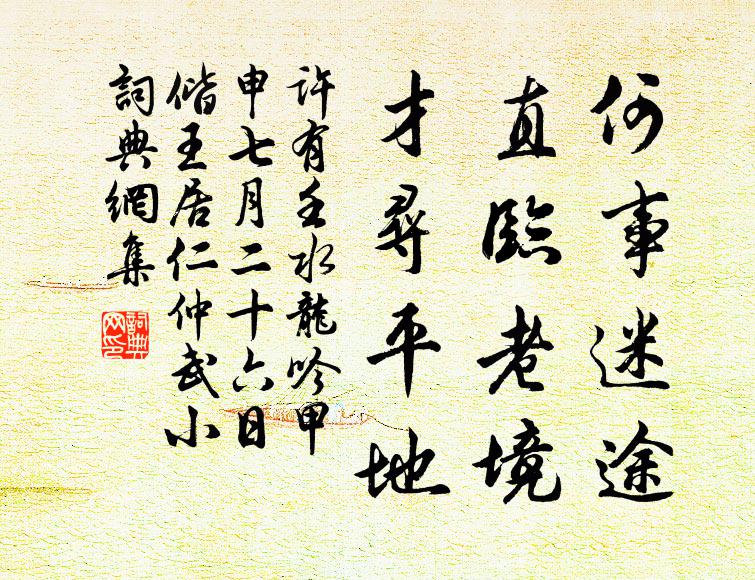 何事迷途
直臨老境
才尋平地
許有壬水龍吟甲
申七月二十六日
偕王居仁仲武小
詞典網集
詞典
网印